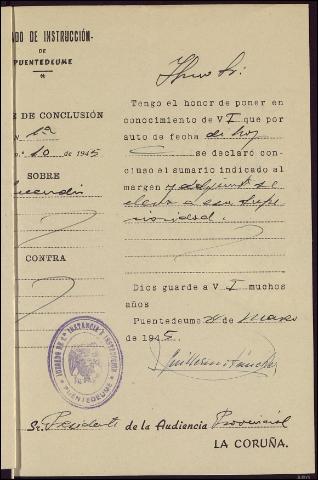 ADO DE INSTRUCCIÓN
DE
PUENTEDEUME
E DE CONCLUSIÓN
N. 1ª
o. 10 de 1945
SOBRE
CONTRA
Ilmo Sr.
Tengo el honor de poner en
conocimiento de V I que por
auto de fecha de hoy
se declaró con-
cluso el sumario indicado al
margen y adjunto se
eleva a esa supe-
rioridad.
Dios guarde a V I muchos
años
Puentedeume de Marzo
de 1945.
Guillermo Sánchez
JUZGADO DE 1ª INSTANCIA E INSTRUCCION
PUENTEDEUME
Sr. Presidente de la Audiencia Provincial
LA CORUÑA.